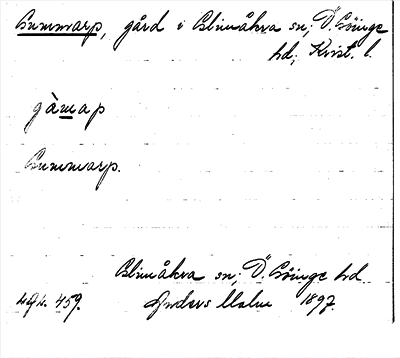 Gummarp, gård i Glimåkra sn; Ö. Göinge
hd; Krist. l.
gàmap
Gummarp.
Glimåkra sn; Ö. Göinge hd
459. Anders Malm 1897.